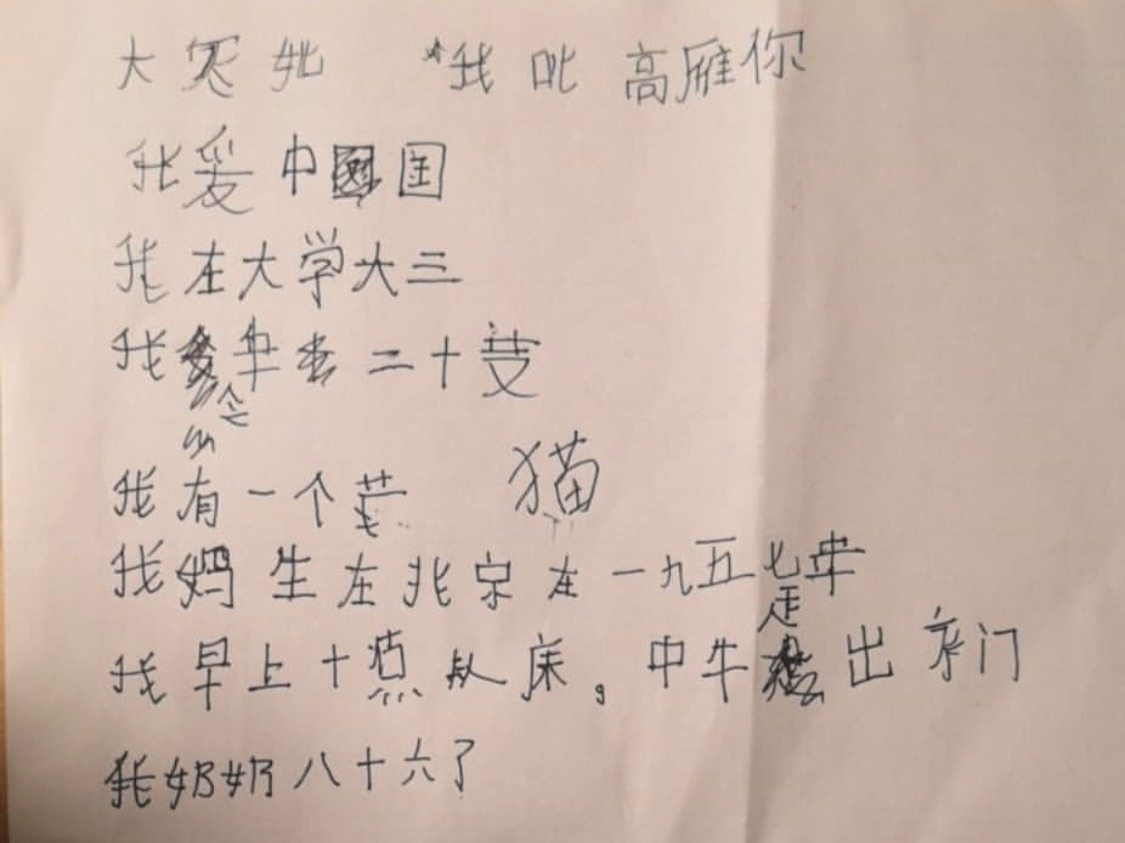 大 我 高雁你
我爱中国
我在大学大三
我今年 二十
我有一个 猫
我妈生在北京在一九五七年
我早上十点 床。中牛走出 门
我奶奶八十六了